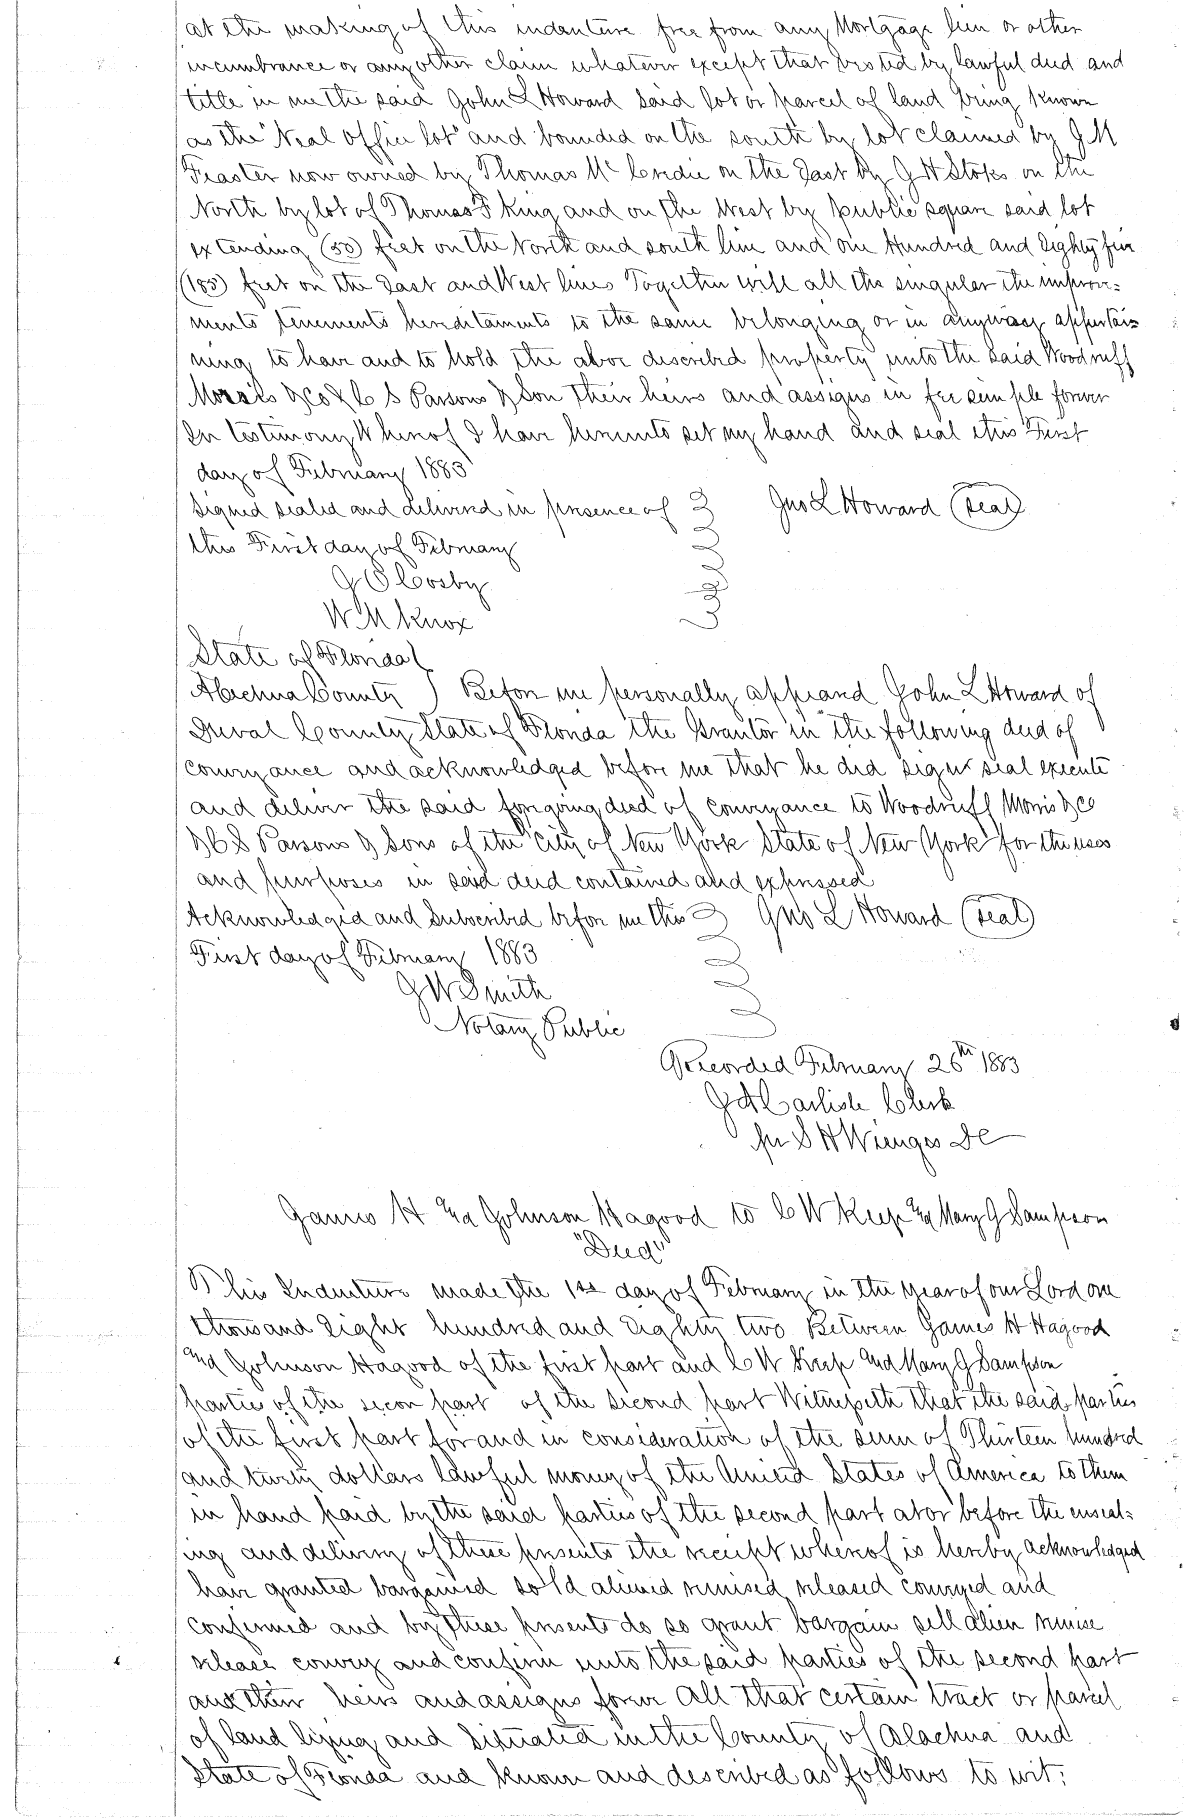 at the making of this indenture free from any Mortgage lien or other
incumbrance or any other claim whatever except that vested by lawful deed and
title in me the said John L Howard said lot or parcel of land being known
as the "Neal Office lot" and bounded on the south by lot claimed by J M
Feaster now owned by Thomas Mc Credie on the East By J W Stokes on the
North by lot of Thomas F King and on the West by public square said lot
extending (50) feet on the North and south line and one Hundred and Eighty five
(185) feet on the East and West lines Together with all the singular the improve=
ments tenements hereditaments to the same belonging or in anyway appertai=
ning to have and to hold the above described property unto the said Woodruff
Morris & Co & C S Parsons & Son their heirs and assigns in fee simple forever
In testimony Whereof I have hereunto set my hand and seal this First
day of February 1883
Signed sealed and delivered in presence of Jno L Howard (seal)
this First day of February
J O Cosby
W M Knox
State of Florida
Alachua County Before me personally appeared John L Howard of
Duval County State of Florida the Grantor in the following deed of
conveyance and acknowledged before me that he did sign seal execute
and deliver the said foregoing deed of conveyance to Woodruff Morris & Co
& C S Parsons & Sons of the City of New York State of New York for the uses
and purposes in said deed contained and expressed
Acknowledged and Subscribed before me this Jno L Howard (seal)
First day of February 1883
J W Smith
Notary Public
Recorded February 26th 1883
J A Carlisle Clerk
per S H Wienges DC
James H and Johnson Hagood to C W Keep and Mary J Sampson
"Deed"
This Indenture made the 1st day of February in the year of our Lord one
thousand Eight hundred and Eighty two Between James H Hagood
and Johnson Hagood of the first part and C W Keep and Mary J Sampson
parties of the secon part of the second part Witnesseth that the said parties
of the first part for and in consideration of the sum of Thirteen hundred
and twenty dollars lawful money of the United States of America to them
in hand paid by the said parties of the second part at or before the enseal=
ing and delivery of these presents the receipt whereof is hereby acknowledged
have granted bargained sold aliened remised released conveyed and
confirmed and by these presents do so grant bargain sell alien remise
release convey and confirm unto the said parties of the second part
and their heirs and assigns forever All that certain tract or parcel
of land lying and Situated in the County of Alachua and
State of Florida and known and described as follows to wit: